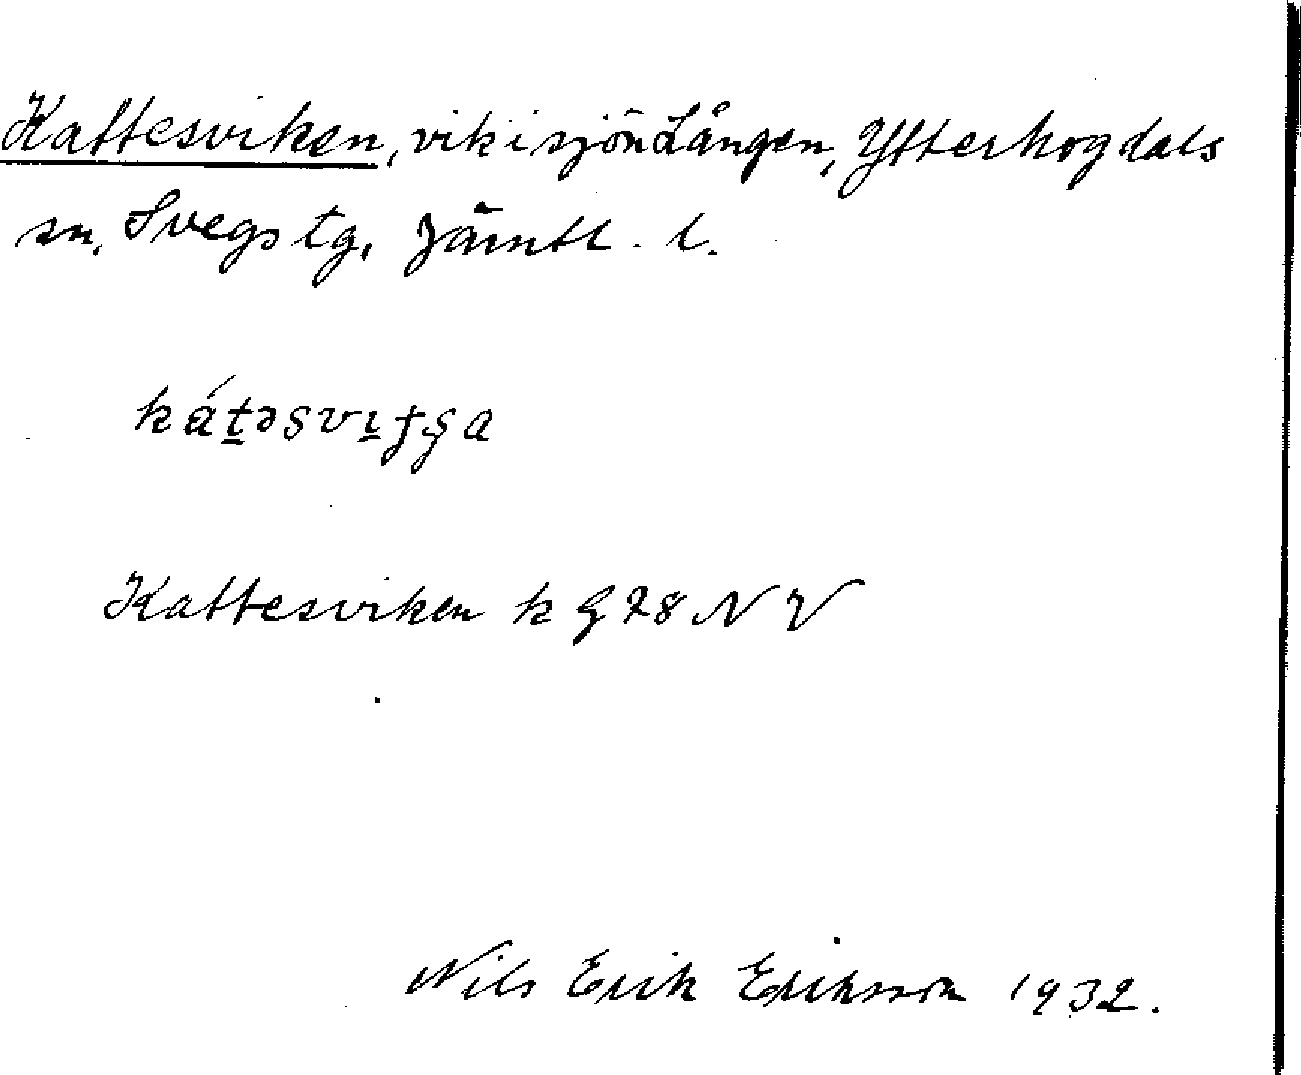 Kattesviken, vik i sjön Lången, Ytterhogdals
sn, Svegs tg, Jämtl. l.
Kattesviken k G 78 NV
Nils Erik Eriksson 1932.